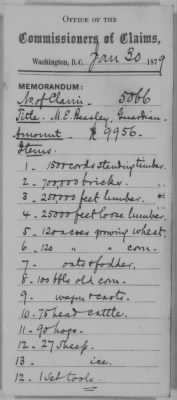 OFFICE OF THE
Commissioners of Claims,
Washington, D.C. Jan 30 1879
MEMORANDUM:
No. of Claim - 5066
Title - M. E. Beasley, Guardian.
Amount $9956.
Items.
1 - 1500 cords standing timber.
2 - 700,000 bricks. "
3 - 250000 feet lumber. "
4 - 25000 feet loose lumber.
5 - 120 acres growing wheat.
6 - 120 " " corn.
7 - oats & fodder.
8 - 100 bbls old corn.
9 - wagon & carts.
10 - 75 head cattle.
11 - 90 hogs.
12 - 27 sheep.
13 - ice.
12 - 1 set tools.